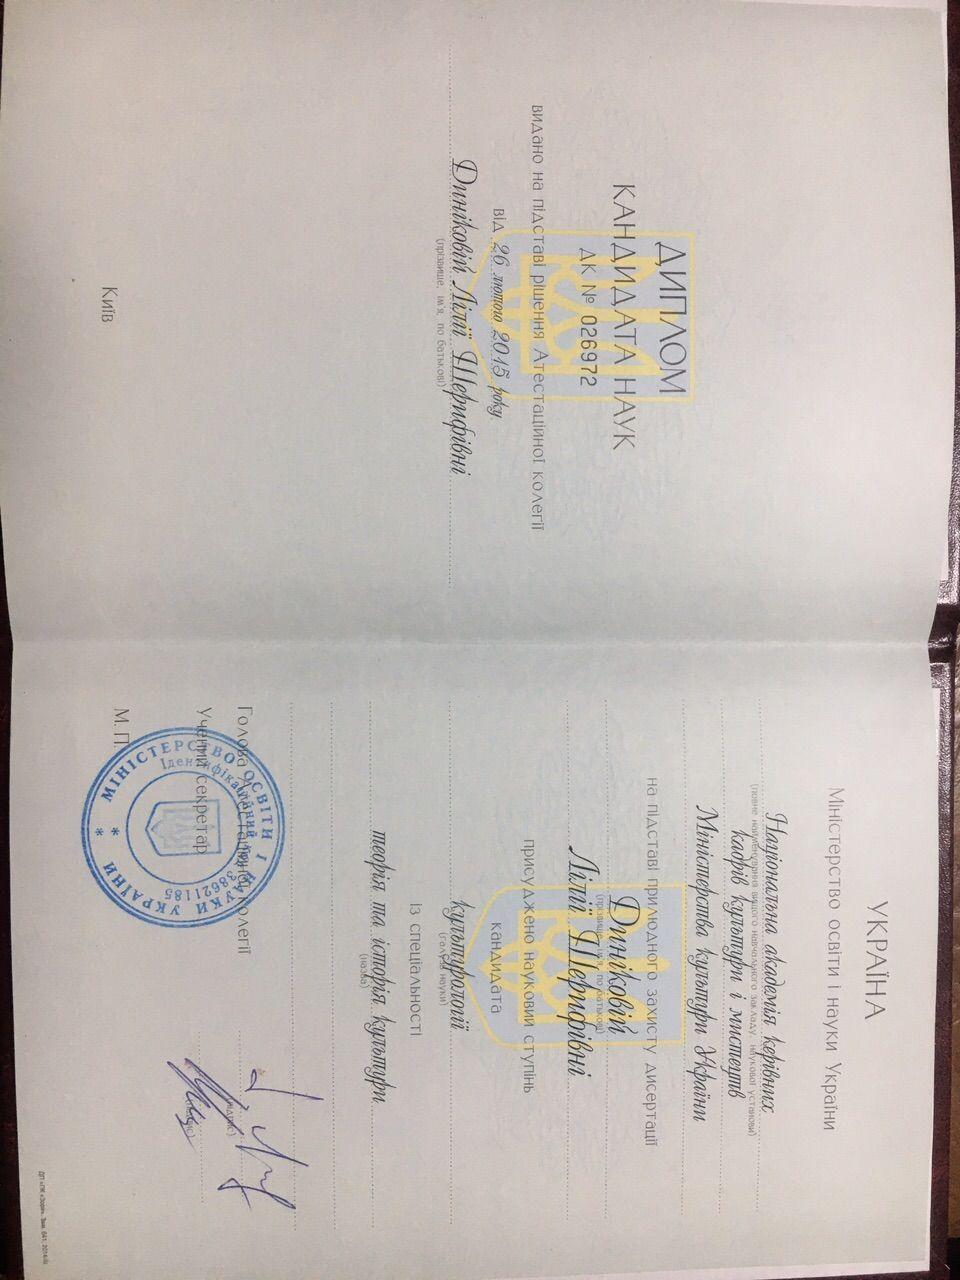 ДИПЛОМ
КАНДИДАТА НАУК
ДК № 026972
видано на підставі рішення Атестаційної колегії
від 26 лютого 2015 року
Диніковій Лілії Шерифівні
(прізвище, ім'я, по батькові)
Київ
УКРАЇНА
Міністерство освіти і науки України
Національна академія керівних
(повне найменування вищого навчального закладу, наукової установи)
кадрів культури і мистецтв
Міністерства культури України
на підставі прилюдного захисту дисертації
Диніковій
(прізвище, ім'я, по батькові)
Лілії Шерифівні
присуджено науковий ступінь
кандидата
культурології
(галузь науки)
із спеціальності
теорія та історія культури
(назва)
Голова Атестаційної колегії
(підпис)
Учений секретар
(підпис)
М. П.
МІНІСТЕРСТВО ОСВІТИ І НАУКИ УКРАЇНИ * *
Ідентифікаційний код 38621185